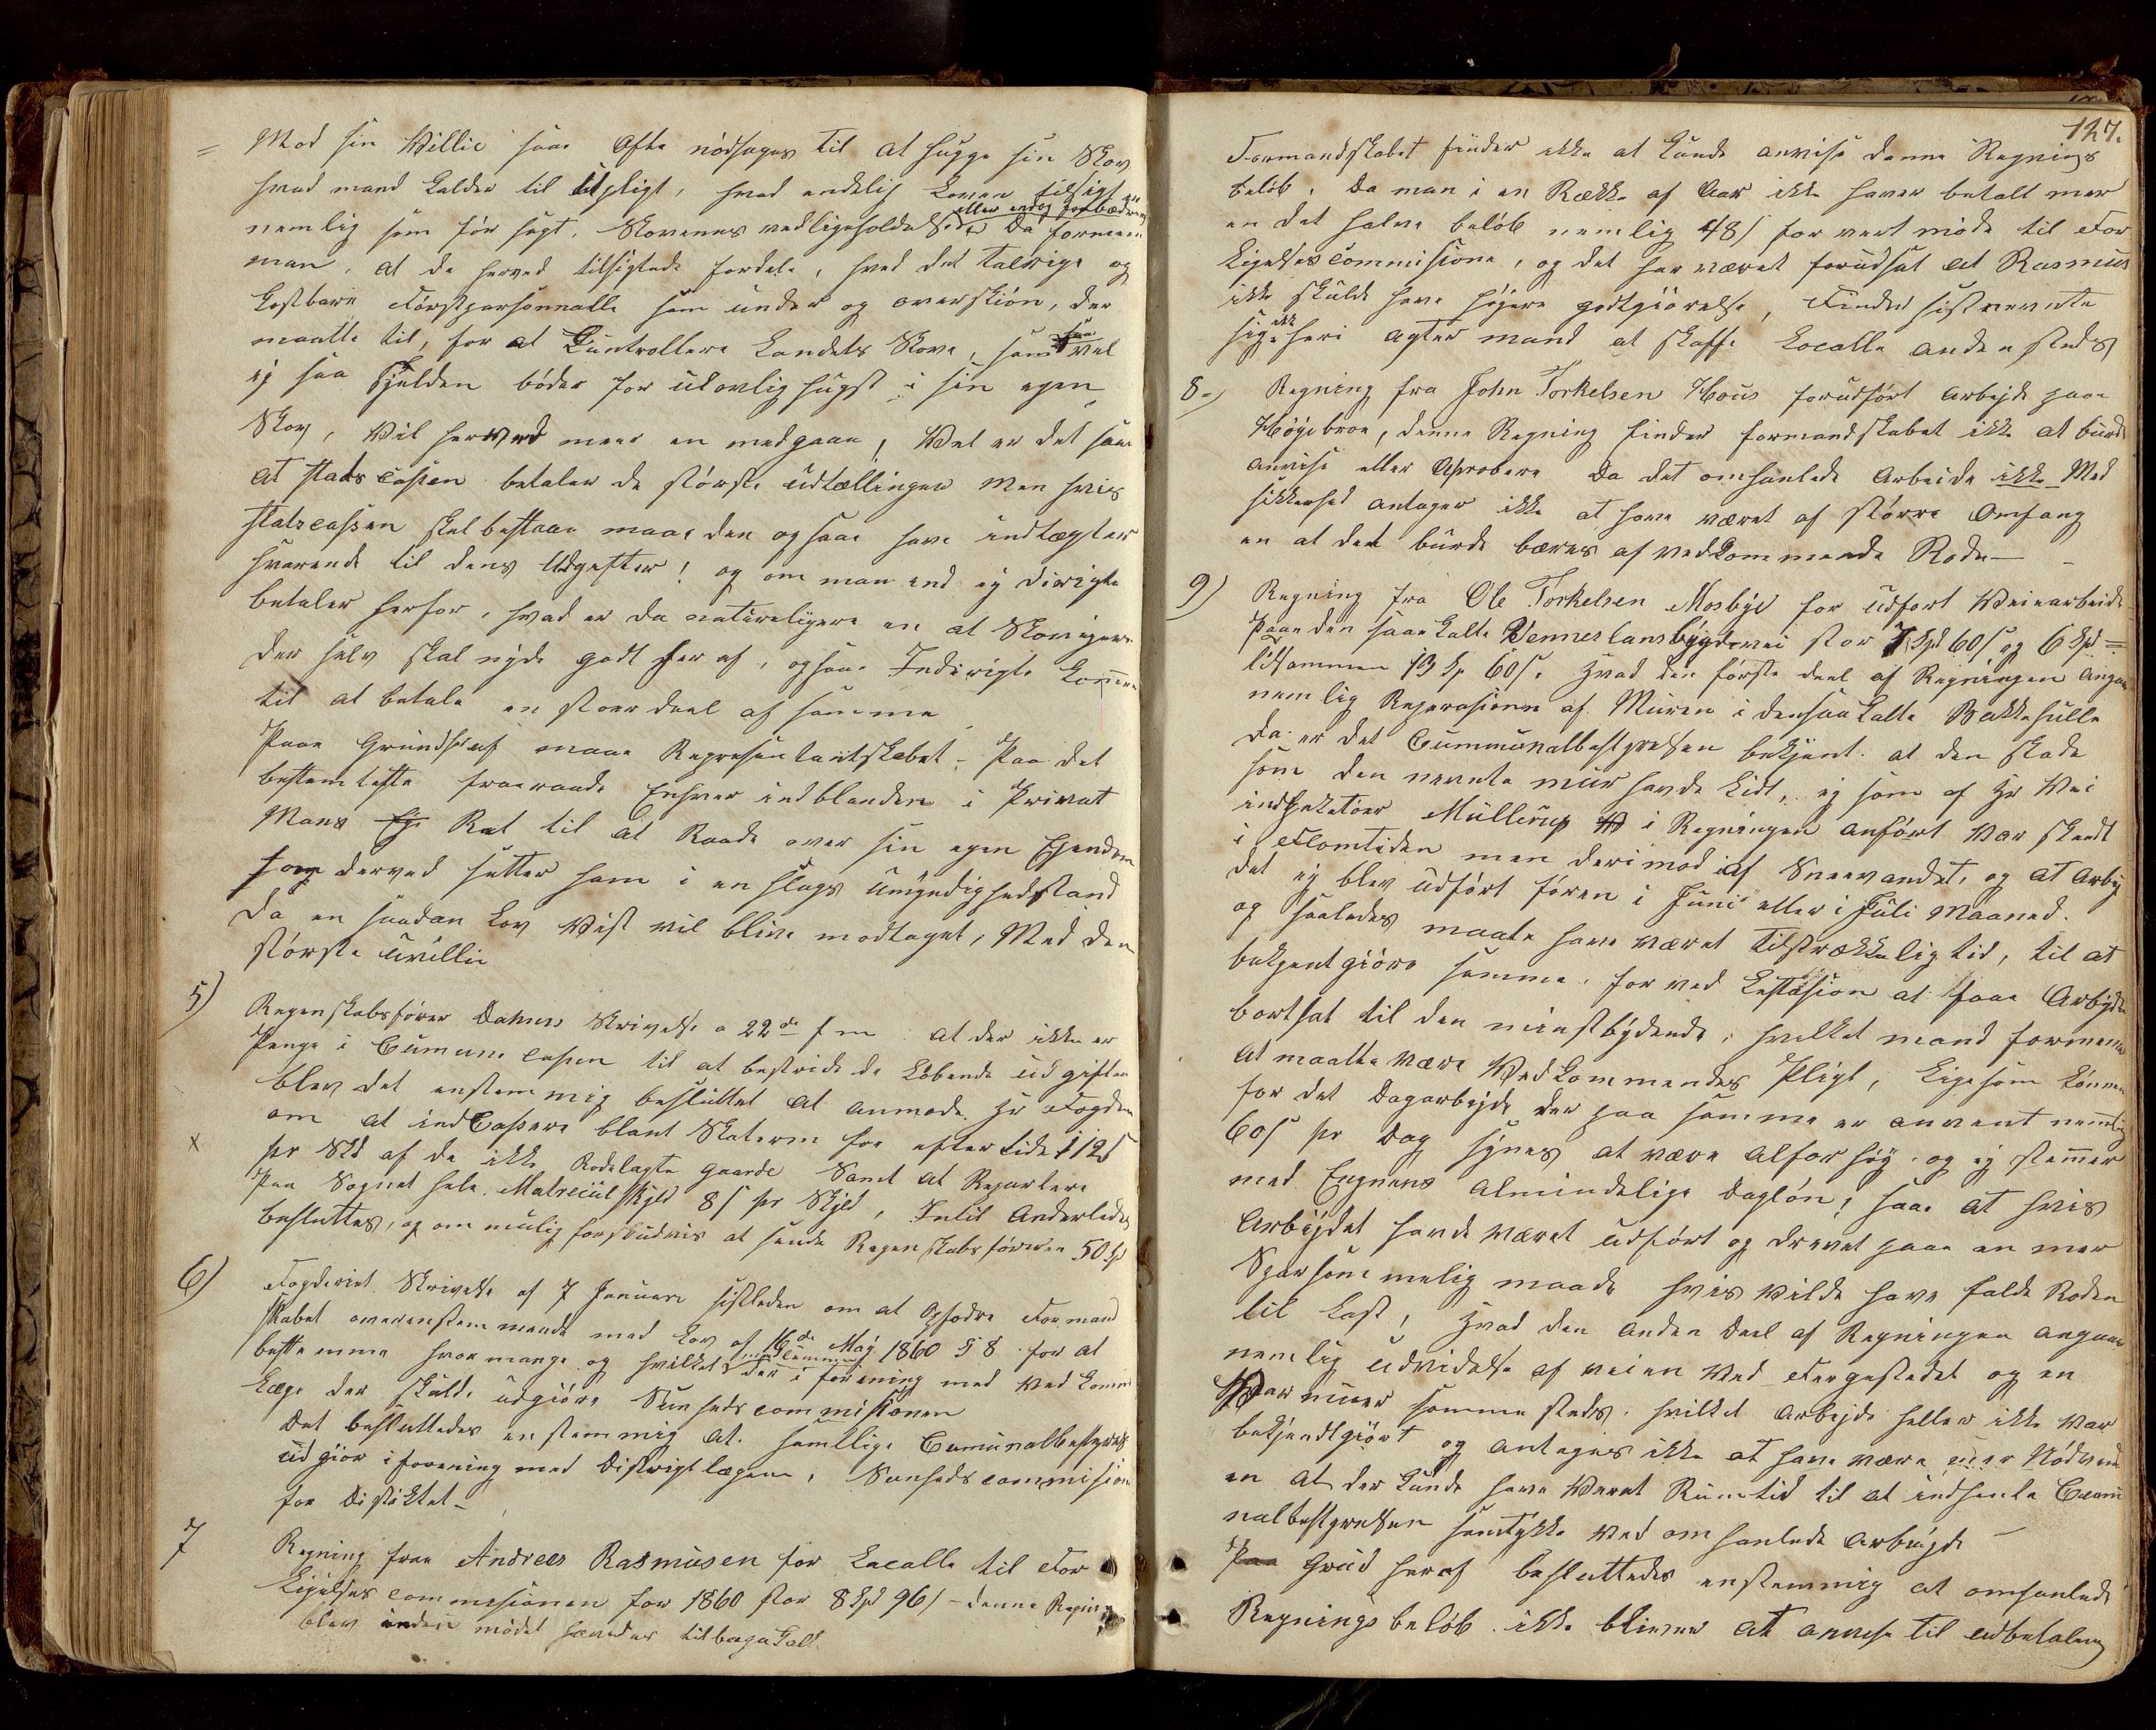 = Mod sin Villie saa Ofte nødsages til at hugge sin Skov
hvad mand kalder til Upligt, hvad endelig Loven tilsigter
eller endog forbædring
nemlig som før sagt, Skovenes vedligeholdelse Da formener
man, at de herved tilsigtede fordele, hved det talrige og
kostbare Førstpersonnalle som under og overskiøn, der
saa
maatte til, for at Controllere Landets Skove, samt vel
ej saa sjelden bøder for ulovlig hugst i sin egen
Skov, Vil herved meer en medgaae, Vel er det saa
at stats cassen betaler de største udtællinger Men hvis
statscassen skal bestaae maae den ogsaae have indtægter
svarende til dens Udgifter! og om man end ej dirigte
betaler herfor, hvad er da natureligere en at Skoveigere
der selv skal nyde godt heraf, ogsaa Indirigte komme
til at betale en stoer deel af samme
Paae Grund heraf maae Representantskabet – Paa det
bestemteste fraraade Enhver indblanden i Privat
Mans Ret til at Raade over sin egen Ejendom
som derved setter ham i en slags Umyndighedsstand
da en saadan Lov Vist vil blive modtaget, Med den
største uvillie
5) Regenskabsfører Dahnes Skrivelse a 22de f m at der ikke er
Penge i Cumune Casen til at bestride de Løbende udgifter
blev det enstemmig besluttet at anmode Hr Fogden
om at indCassere blant Skaterne for eftertide 112 s
x per Skl af de ikke Rodelagte gaarde Samt at Repartere
Paa Sognet hele Matreiul skyld 8 s pr Skyld, Intil Anderledes
besluttes, og om mulig forskudvis at sende Regenskabsføreren 50 Sp
6) Fogderiet Skrivelse af 7 Januari sistleden om at Opfodre Formand
skabet overenstemmende med Lov af 16de Maj 1860 § 8 for at
bestemme hvor mange og hvilket der i forening med Vedkomm
Læge der skulde udgiøre Sunhedscommissionen
Det besluttedes enstemmig at samtlige Cumunalbestyrelse
udgiør i forening med Distrigtlægene, Sunhedscommission
for Distriktet –
7 Regning fraa Andrees Rasmusen for Localle til For
Ligelsescommesionen for 1860 stor 8 Spd 96 s – denne Regning
blev inden mødet hævedes tilbagekalt
127.
Formandskabet finder ikke at kunde anvise denne Regnings
beløb, Da man i en Række af Aar ikke haver betalt mer
en det halve beløb nemlig 48 s for vert møde til For
Ligelsescommisione, og det har været forudsat at Rasmus
ikke skulde have højere godtgiørelse, Finder sistnevnte
ikk
sig heri agter mand at skaffe Localle andensteds
8 –) Regning fra John Torkelsen Hous for udført Arbejde paae
Høyebroe, denne Regning finder formandskabet ikke at burde
anvise eller Aprobere Da det omhanlede Arbeide ikke Med
sikkerhed antages ikke at have været af større Omfang
en at det burde bæres af vedkommende Rode –
9) Regning fra Ole Torkelsen Mosbye for udført Veiearbeide
Paae den saakalte Venneslansbygdevei stor 7 Spd 60 s og 6 Spd =
tilsammen 13 Sp 60 s. Hvad den første deel af Regningen Angaar
nemlig Reperasionen af Muren i densaakalte Bakkehulle
da er det Cummunalbestyrelsen bekjent at den skade
som den nevnte mur havde Lidt, ej som af Hr Vei
indspektøer Müllerup i Regningen anført Var skeedt
i Flomtiden men derimod af Sneevandet, og at Arbej
det ej blev udført føren i Juni eller i Juli Maaned.
og saaledes maate have været tilstrækkelig tid, til at
bekjentgiøre samme, for ved Lestasion at faae Arbejdet
bortsat til den minstbydende, hvilket mand formener
at maatte være Vedkommendes Pligt, Ligesom Lønnen
for det Dagarbejde der paa samme er anvent nemlig
60 s pr Dag synes at være alfor høy og ej stemer
med Eegnens almindelige Dagløn, saa at hvis
Arbejdet havde været udført og drevet paae en mer
Sparsommelig maade hvis vilde have falde Roden
til Last, Hvad den Anden Deel af Regningen angaar
nemlig udvidelse af veien Ved Fergestedet og en
muer samme steds, hvilket Arbejde heller ikke Var
bekjendtgiørt og antages ikke at have være mer Nødvend
en at der kunde have Været Rumtid til at indhente Cumu
nalbestyrelsen samtykke Ved omhanlede Arbejde –
Paa Grund heraf besluttedes enstemmig at omhanlede
Regnings beløb ikke bliver at anvise til udbetaling